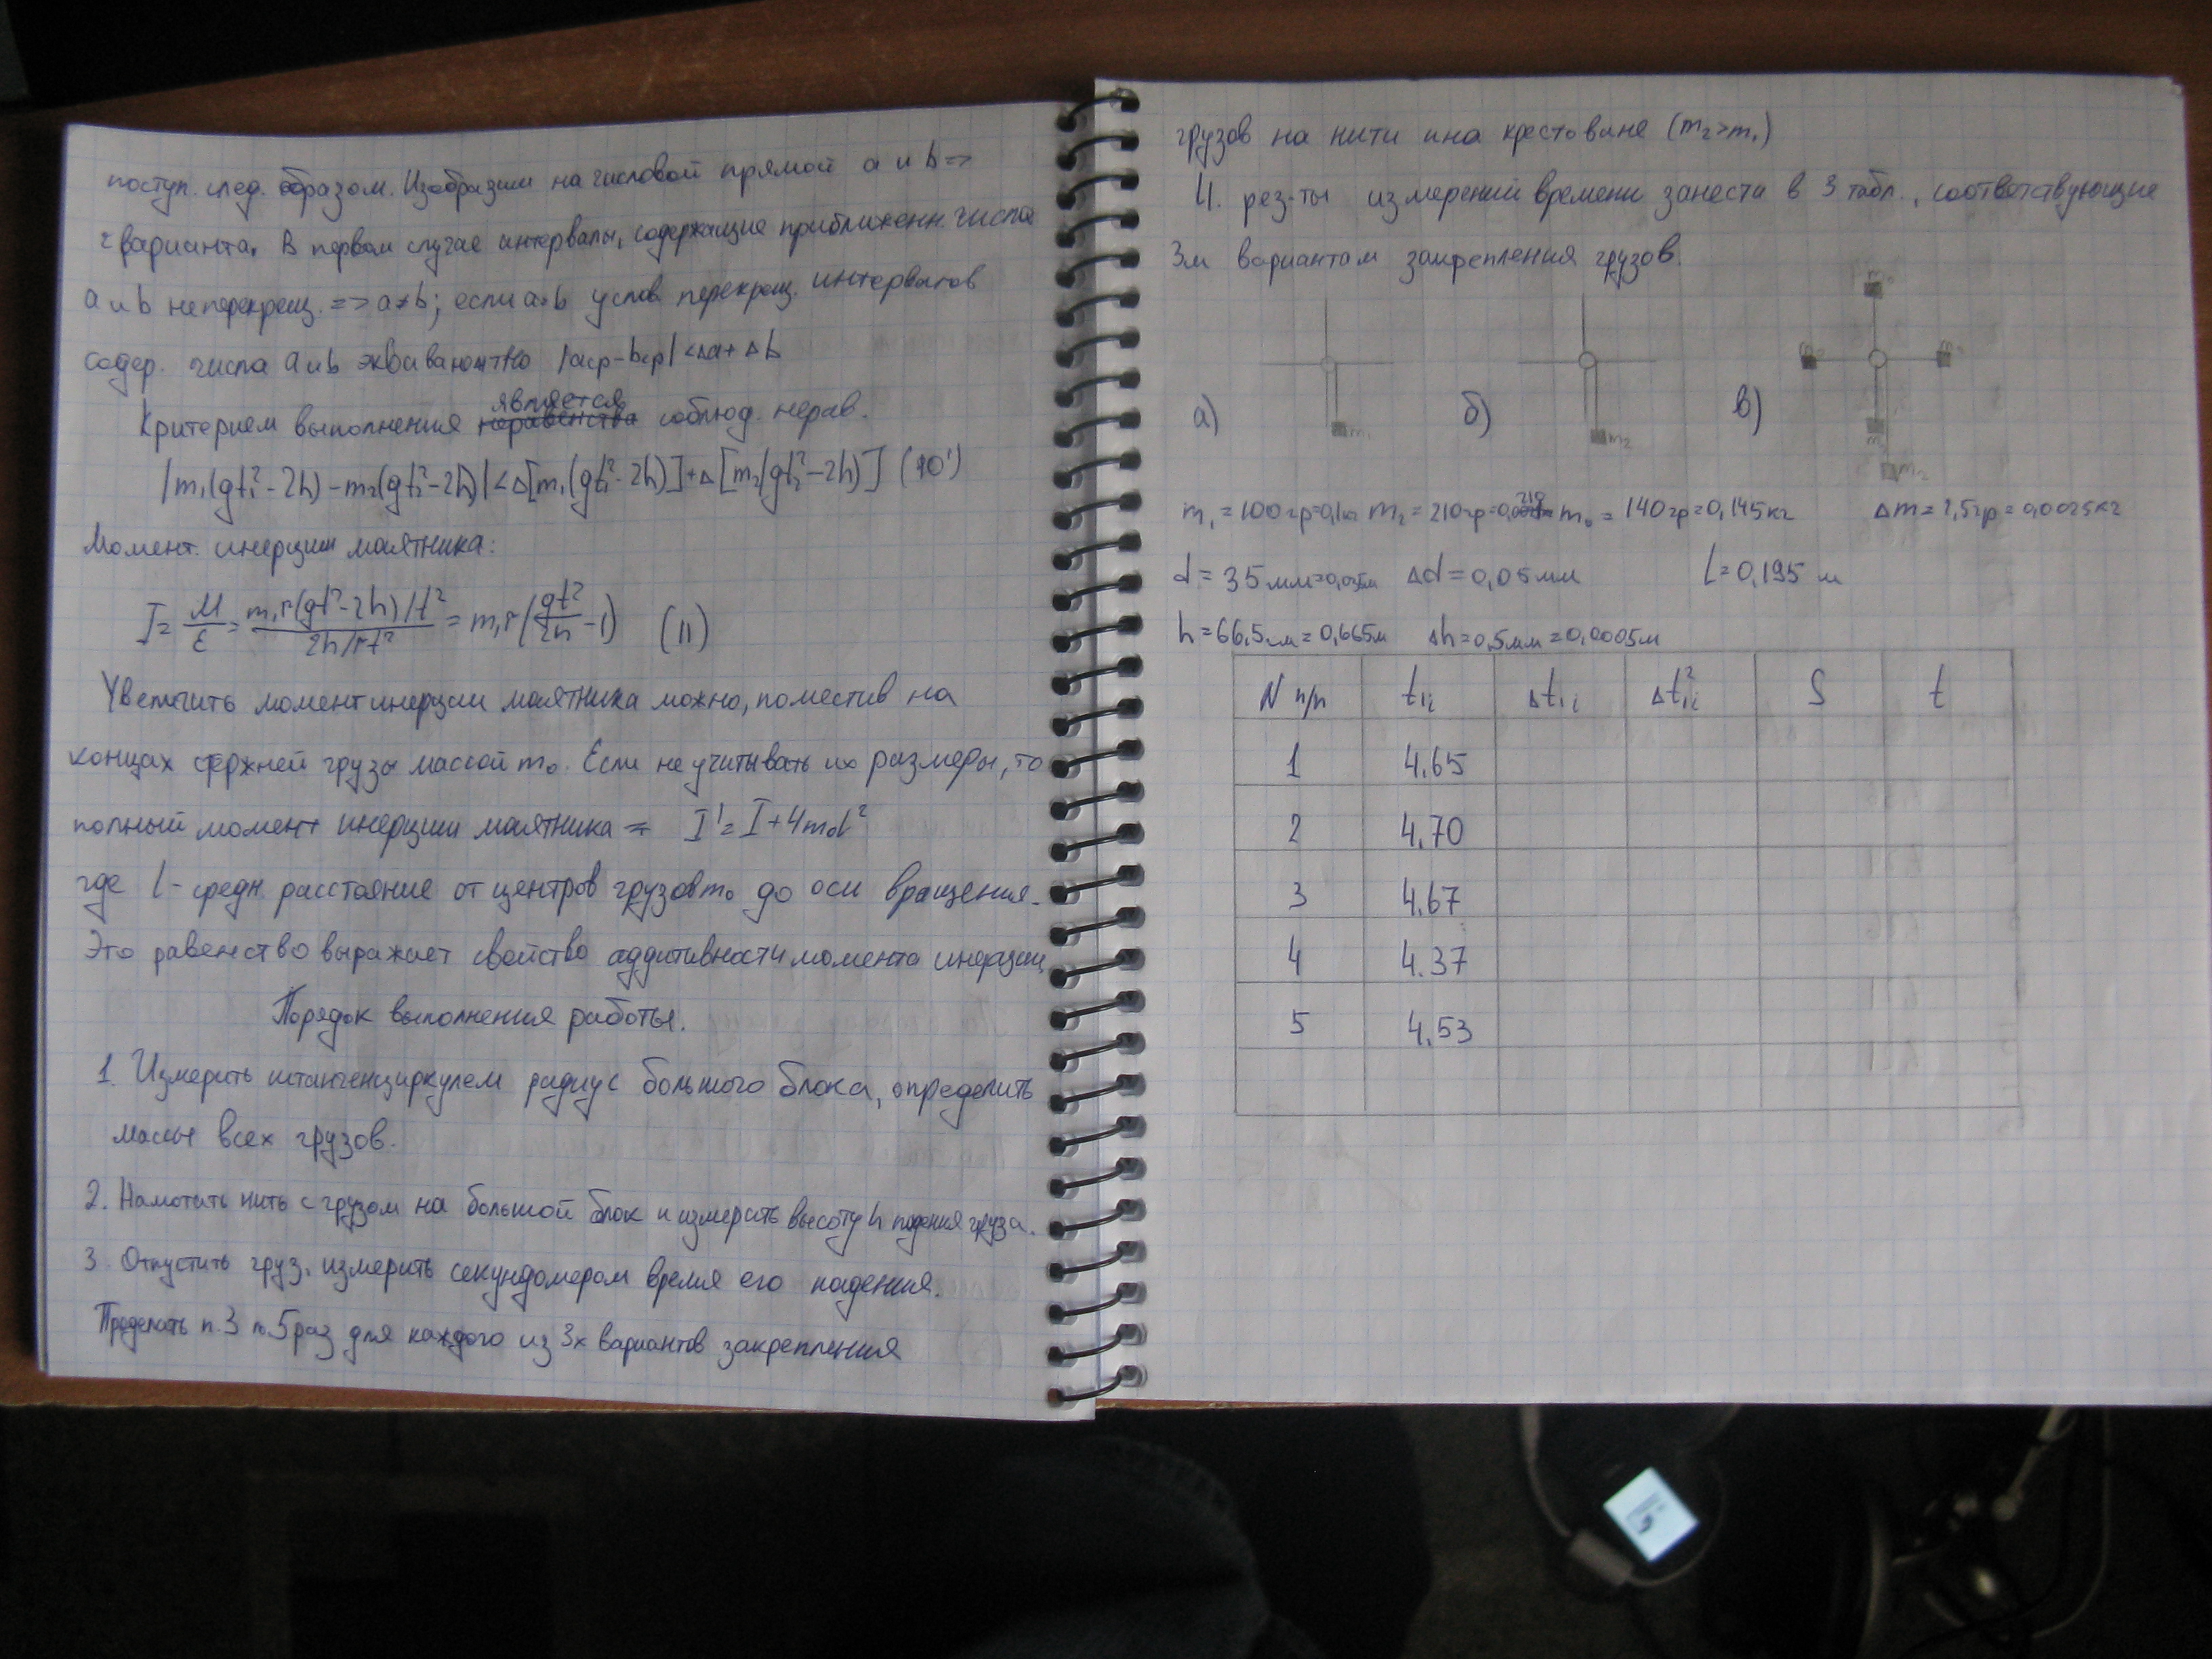 поступ. след. образом. Изобразим на числовой прямой a и b =>
2 варианта. В первом случае интервалы, содержащие приближенн. числа
a и b не перекрещ. => a≠b; если a=b услов. перекрещ. интервалов
содер. числа a и b эквивалентно |aср-bср|<Δa+Δb
Критерием выполнения является соблюд. нерав.
|m₁(gt₁²-2h)-m₂(gt₂²-2h)|<Δ[m₁(gt₁²-2h)]+Δ[m₂(gt₂²-2h)] (10')
Момент. инерции маятника:
I = M/ε = m₁r(gt²-2h)/t² / 2h/rt² = m₁r(gt²/2h -1) (11)
Увеличить момент инерции маятника можно, поместив на
концах стержней грузы массой m₀. Если не учитывать их размеры, то
полный момент инерции маятника = I'=I+4m₀l²
где l - средн. расстояние от центров грузов m₀ до оси вращения.
Это равенство выражает свойство аддитивности момента инерции
Порядок выполнения работы.
1. Измерить штангенциркулем радиус большого блока, определить
массы всех грузов.
2. Намотать нить с грузом на большой блок и измерить высоту h падения груза.
3. Отпустить груз, измерить секундомером время его падения.
Проделать п.3 по 5 раз для каждого из 3х вариантов закрепления
грузов на нити и на крестовине (m₂>m₁)
4. рез-ты измерений времени занести в 3 табл., соответствующие
3м вариантам закрепления грузов.
m₀
m₀ m₀
а) m₁ б) m₂ в)
m₂
m₁=100гр=0,1кг m₂=210гр=0,210 m₀=140гр=0,145кг Δm=2,5гр=0,0025кг
d=35мм=0,035м Δd=0,05мм l=0,195 м
h=66,5см=0,665м Δh=0,5мм=0,0005м
N п/п t₁ᵢ Δt₁ᵢ Δt₁ᵢ² S t
1 4.65
2 4.70
3 4.67
4 4.37
5 4.53